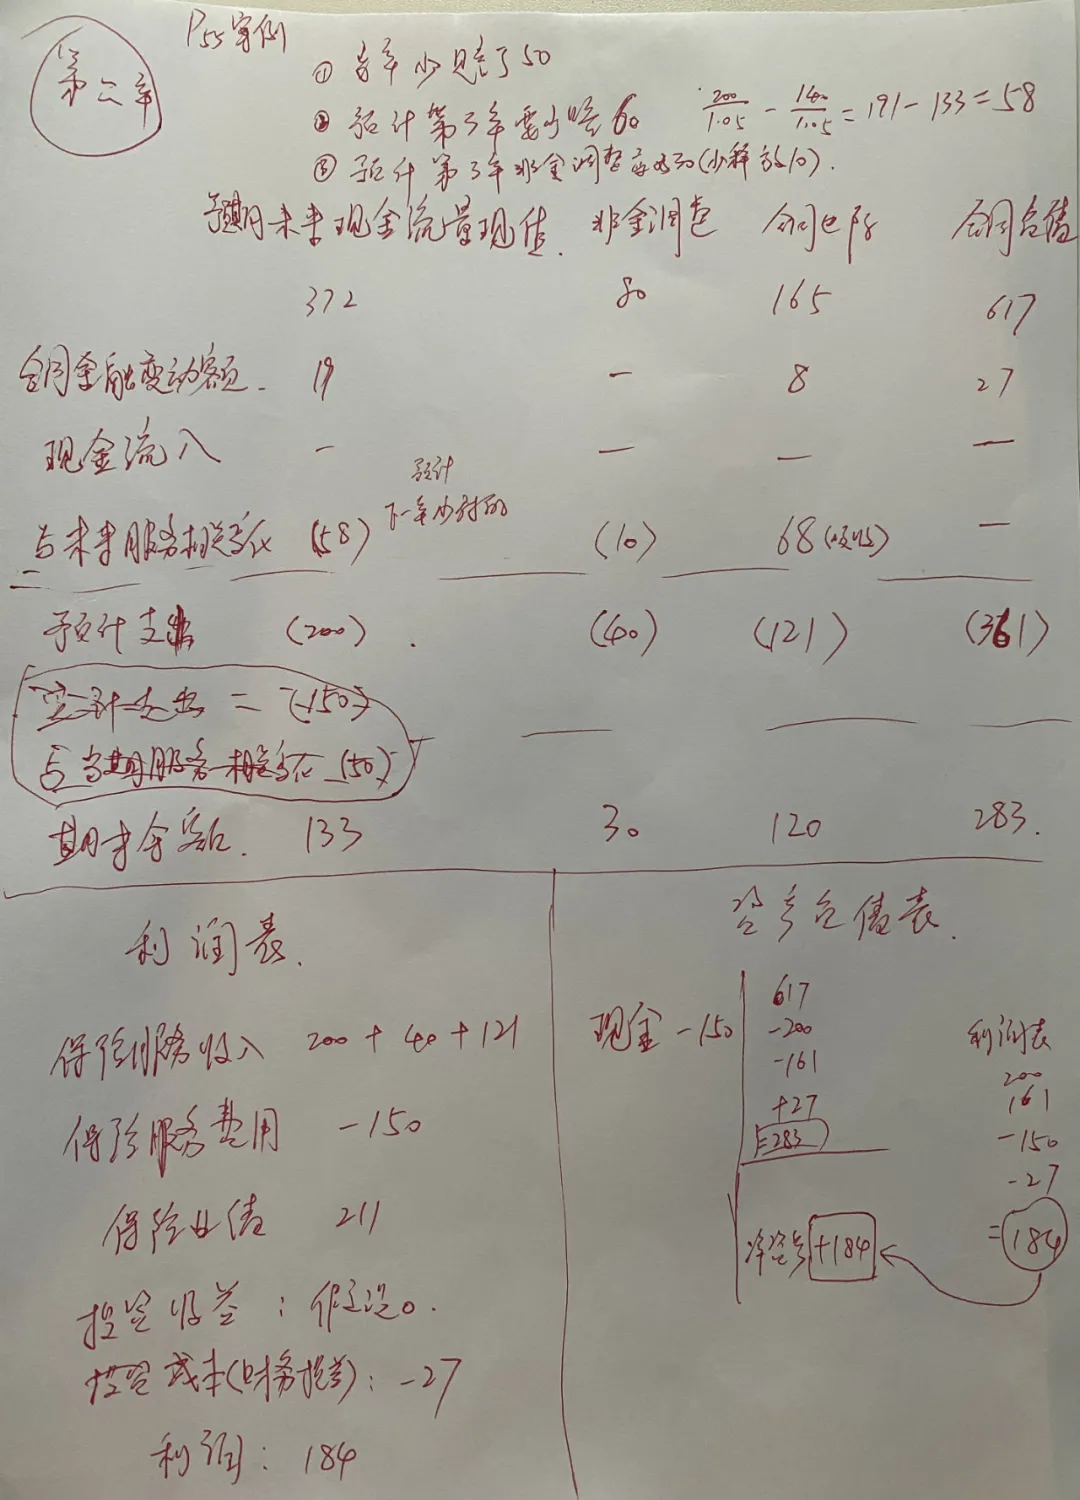 第二年
P55实例
① 当年少赔了50
② 预计第3年要少赔60 200/1.05 - 140/1.05 = 191 - 133 = 58
③ 预计第3年非金调整变动(少释放10).
预期未来现金流量现值. 非金调整 合同边际 合同负债
372 80 165 617
合同金融变动额. 19 — 8 27
现金流入 — — — —
预计
下一年少付的
与未来服务相关变化 (58) (10) 68(吸收) —
预计支出 (200). (40) (121) (361)
实际支出 = (-150)
与当期服务相关变化 (50)
期末余额. 133 30 120 283.
利润表.
保险服务收入 200 + 40 + 121
保险服务费用 -150
保险业绩 211
投资收益: 假设0.
投资成本(财务损益): -27
利润: 184
资产负债表.
现金 -150
617
-200
-161
+27
=283
净资产 +184
利润表
200
161
-150
-27
= 184